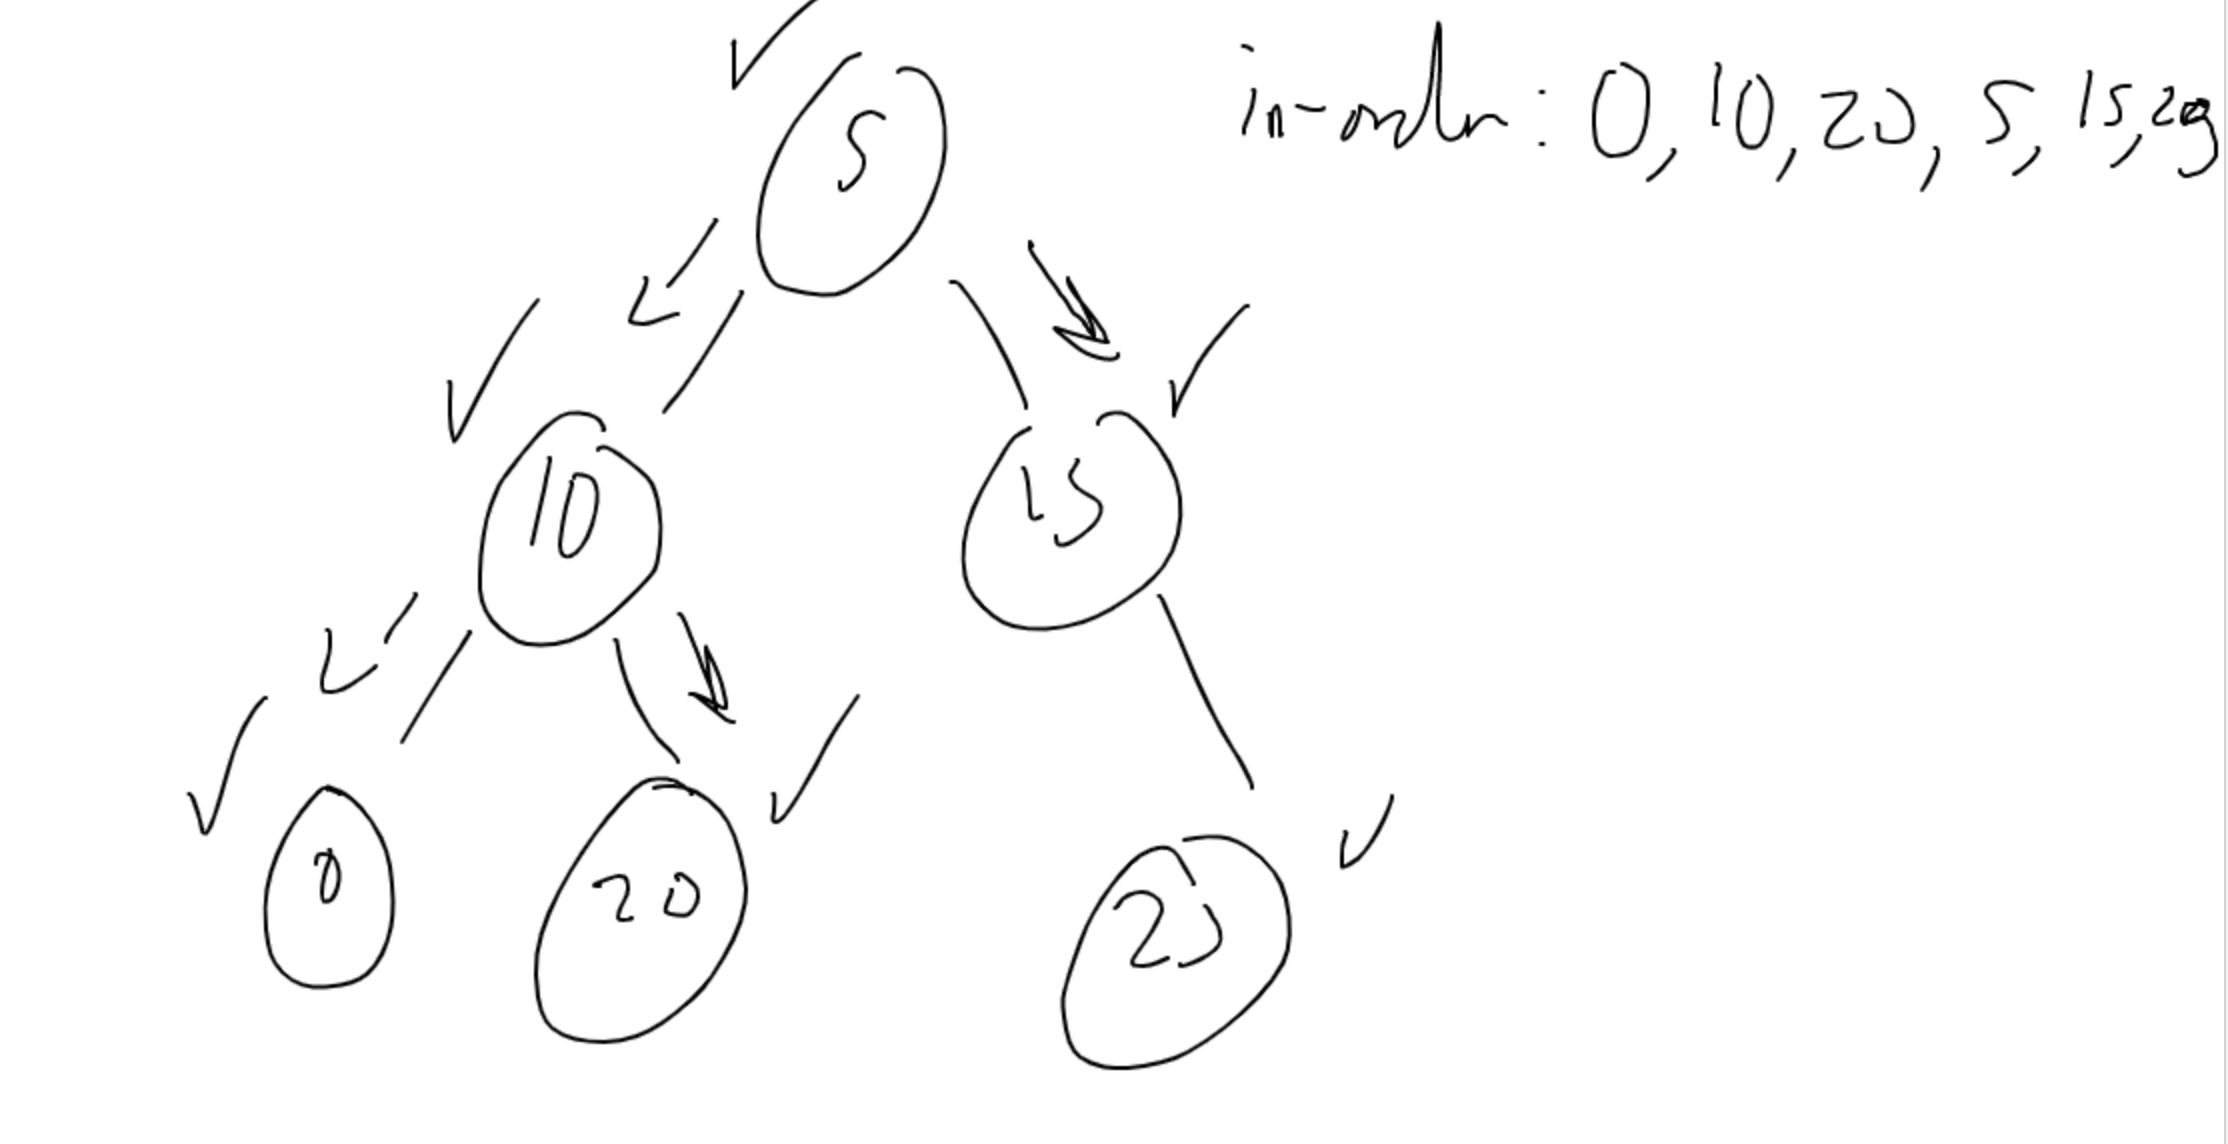 in-order: 0, 10, 20, 5, 15,
5
10
15
0
20
25